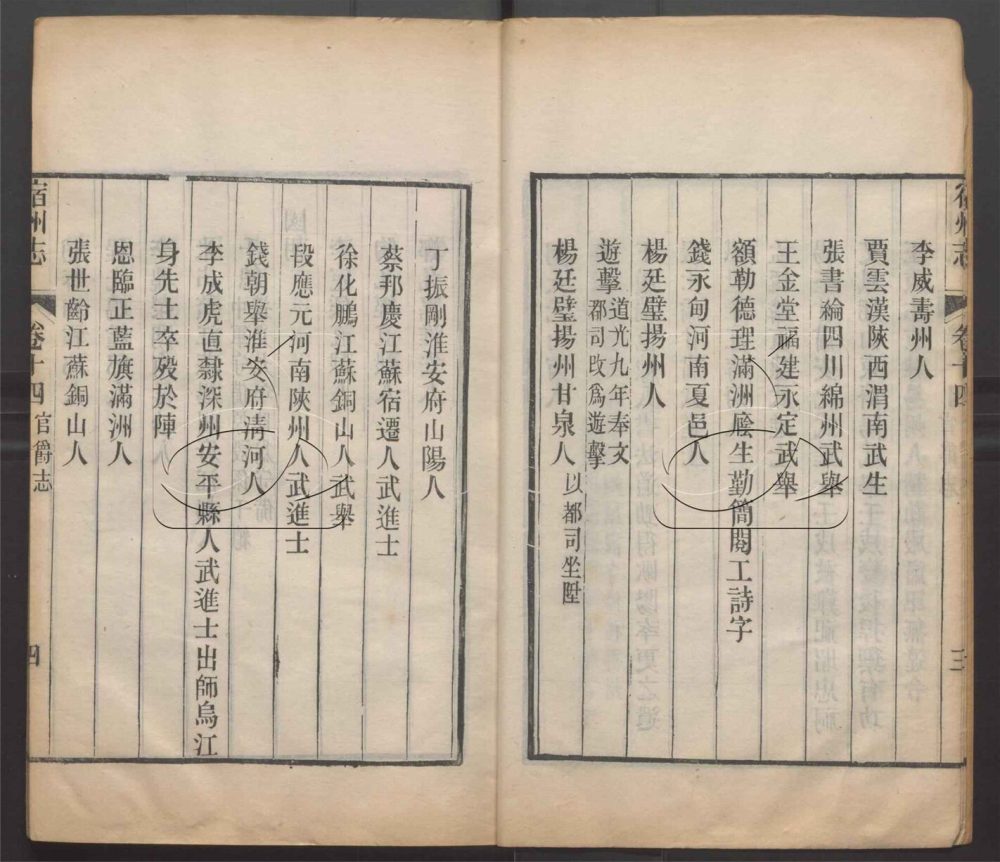 宿州志
卷十四
三
李威壽州人
賈雲漢陝西渭南武生
張書綸四川綿州武舉
王金堂福建永定武舉
額勒德理滿洲廕生勤簡閱工詩字
錢永甸河南夏邑人
楊廷璧揚州人
遊擊道光九年奉文
都司改爲遊擊
楊廷璧揚州甘泉人以都司坐陞
丁振剛淮安府山陽人
蔡邦慶江蘇宿遷人武進士
徐化鵬江蘇銅山人武舉
段應元河南陝州人武進士
錢朝舉淮安府清河人
李成虎直隸深州安平縣人武進士出師烏江
身先士卒殁於陣
恩臨正藍旗滿洲人
張世齡江蘇銅山人
宿州志
卷十四官爵志
四